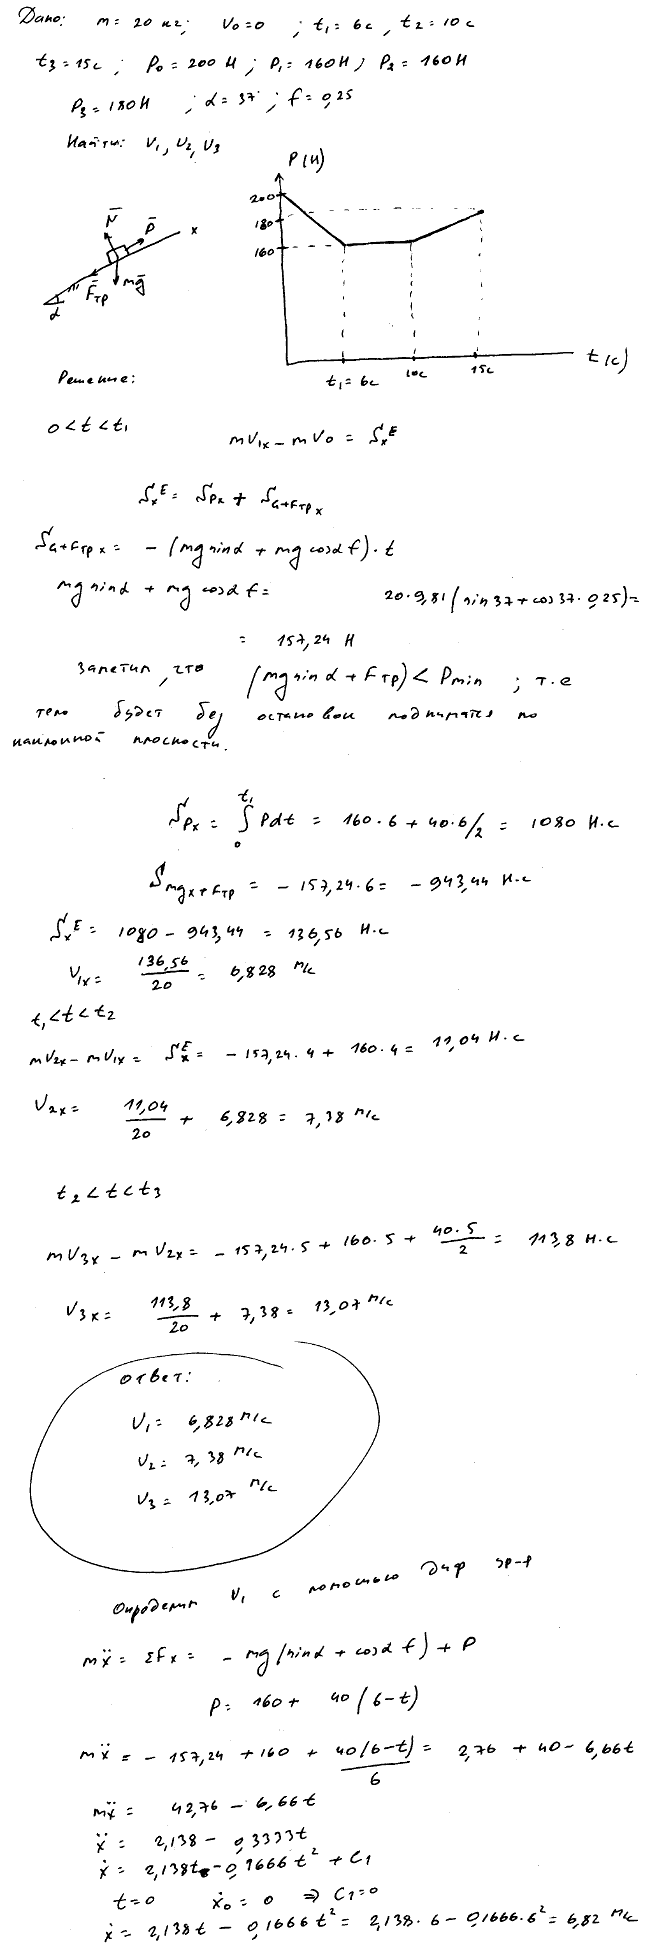 Дано: m = 20 кг; V0=0 ; t1 = 6c , t2 = 10c
t3 = 15c ; P0 = 200 Н ; P1 = 160Н ; P2 = 160Н
P3 = 180Н ; α = 37 ; f = 0,25
Найти: V1, V2, V3
P(Н)
200
180
160
t1 = 6c
10c
15c
t(c)
N̄
P̄
x
F̄тр
mḡ
α
Решение:
0 < t < t1
mV1x - mV0 = SxE
SxE = SPx + SG+Fтр x
SG+Fтр x = - (mg sinα + mg cosα f) · t
mg sinα + mg cosα f = 20·9,81(sin37 + cos37·0,25) =
= 157,24 Н
Заметим, что (mg sinα + Fтр) < Pmin ; т.е
тело будет без остановки подниматся по
наклонной плоскости.
SPx = ∫0t1 Pdt = 160·6 + 40·6/2 = 1080 Н·с
Smgx+Fтр = - 157,24·6 = - 943,44 Н·с
SxE = 1080 - 943,44 = 136,56 Н·с
V1x = 136,56/20 = 6,828 м/с
t1 < t < t2
mV2x - mV1x = SxE = - 157,24·4 + 160·4 = 11,04 Н·с
V2x = 11,04/20 + 6,828 = 7,38 м/с
t2 < t < t3
mV3x - mV2x = - 157,24·5 + 160·5 + 40·5/2 = 113,8 Н·с
V3x = 113,8/20 + 7,38 = 13,07 м/с
ответ:
V1 = 6,828 м/с
V2 = 7,38 м/с
V3 = 13,07 м/с
Определим V1 с помощью диф ур-я
mẍ = ΣFx = - mg(sinα + cosα f) + P
P = 160 + 40(6-t)
mẍ = - 157,24 + 160 + 40(6-t)/6 = 2,76 + 40 - 6,66t
mẍ = 42,76 - 6,66t
ẍ = 2,138 - 0,3333t
ẋ = 2,138t - 0,1666t² + C1
t=0 ẋ0 = 0 ⇒ C1=0
ẋ = 2,138t - 0,1666t² = 2,138·6 - 0,1666·6² = 6,82 м/с